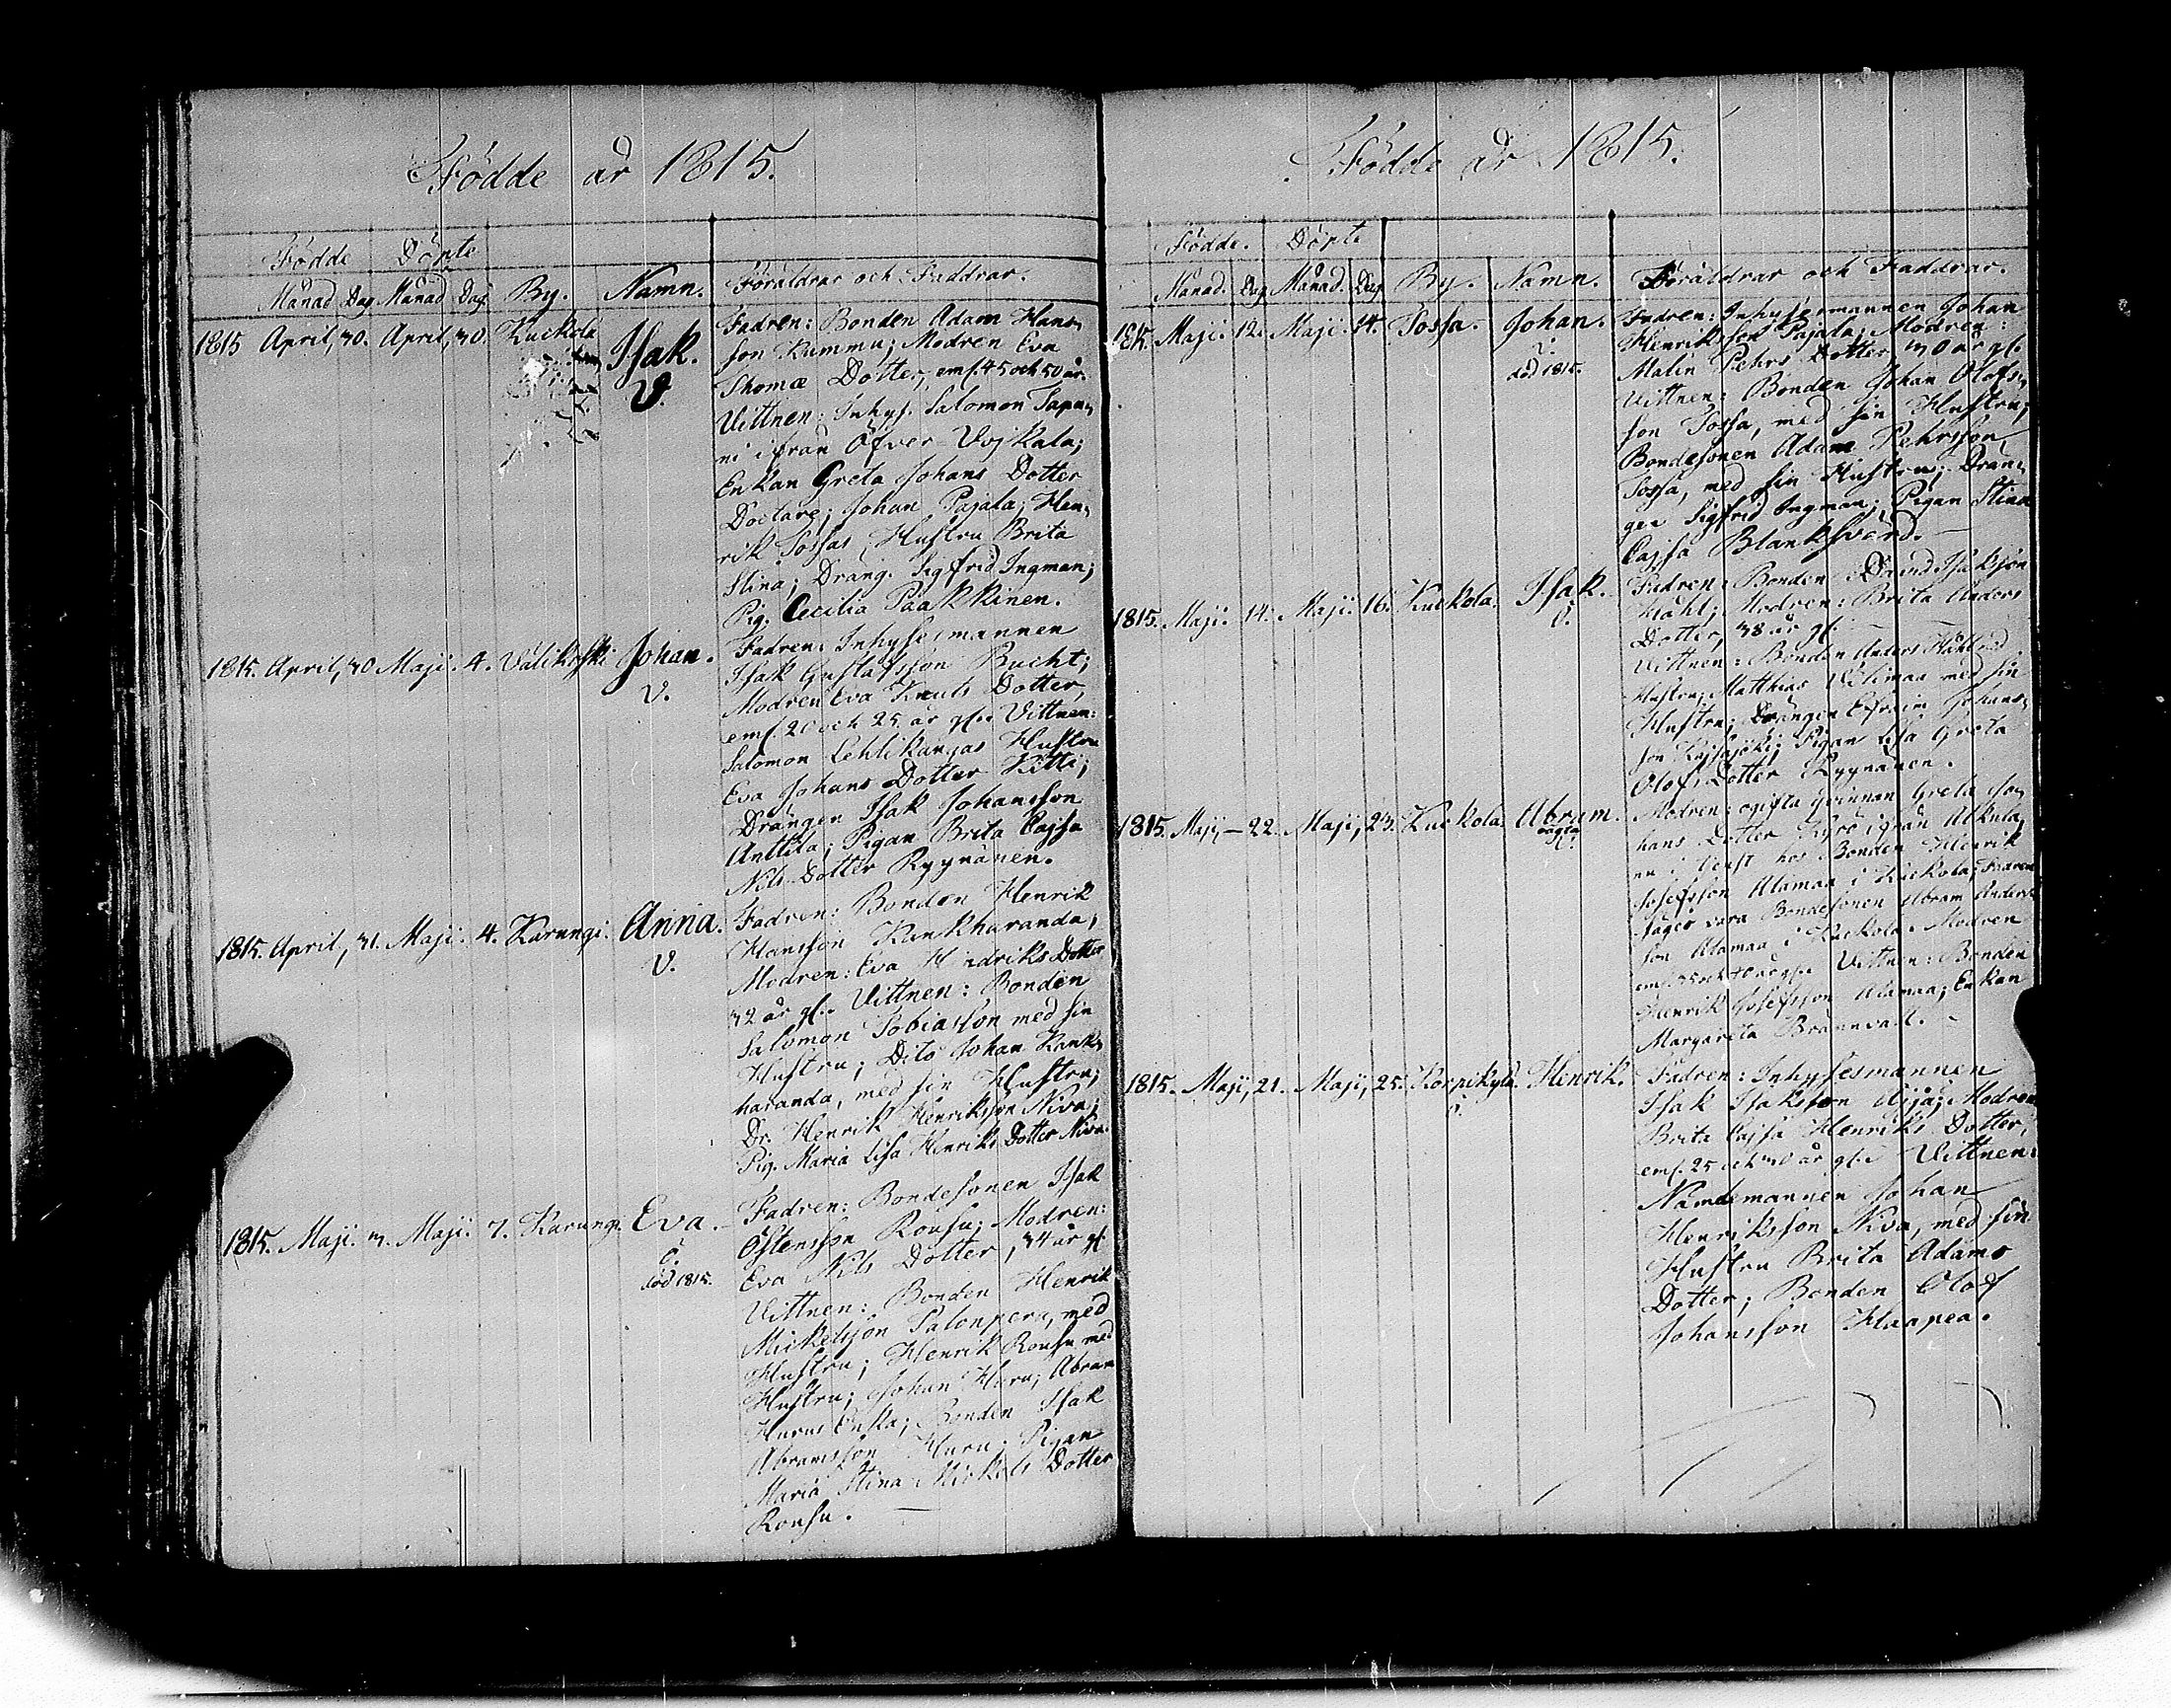 Födde år 1815.
Födde Döpte
Månad Dag. Månad Dag. By. Namn. Föräldrar och Faddrar.
1815 April, 30. April, 30. Kuckola Isak.
V.
Fadren: Bonden Adam Hans,,
son Kummu; Modren Eva
Thomæ Dotter, emf. 45 och 50 år.
Vittnen: Inhys. Salomon Tapa,,
ni ifrån Öfver-Vojkala;
Enkan Greta Johans Dotter
Doctare; Johan Pajala; Hen,,
rik Tossas Hustru Brita
Stina; Dräng. Sigfrid Ingman;
Pig. Cecilia Paakkinen.
1815. April, 30 Maji. 4. Välikoski Johan.
V.
Fadren: Inhysesmannen
Isak Gustafsson Bucht;
Modren Eva Knuts Dotter,
emf. 20 och 25 år gl. Vittnen:
Salomon Lehtikangas Hustru
Eva Johans Dotter Kitti;
Drängen Isak Johansson
Anttila; Pigan Brita Cajsa
Nils Dotter Ryynänen.
1815. April, 31. Maji. 4. Karungi. Anna.
V.
Fadren: Bonden Henrik
Hansson Kankharanda;
Modren: Eva Hindriks Dotter
32 år gl. Vittnen: Bonden
Salomon Tobiasson med sin
Hustru; Dito Johan Kank,,
haranda, med sin Hustru;
Dr. Henrik Henriksson Niva;
Pig. Maria Lisa Henriks Dotter Niva.
1815. Maji. 3. Maji. 7. Karungi. Eva.
död 1815.
Fadren: Bondesonen Isak
Östensson Rousu; Modren:
Eva Nils Dotter, 34 år gl.
Vittnen: Bonden Henrik
Mickelsson Palonpera, med
Hustru; Henrik Rousu med
Hustru; Johan Huru; Abram
Hurus Enka; Bonden Isak
Abramsson Huru; Pigan
Maria Stina Mickels Dotter
Rousu.
Födde år 1815.
Födde. Döpte
Månad. Dag Månad. Dag By. Namn. Föräldrar och Faddrar.
1815. Maji. 12. Maji. 14. Tossa. Johan.
V.
död 1815.
Fadren: Inhysesmannen Johan
Henriksson Pajala; Modren:
Malin Pehrs Dotter, 30 år gl.
Vittnen: Bonden Johan Olofs,,
son Tossa, med sin Hustru;
Bondesonen Adam Pehrsson
Tossa, med sin Hustru; Drän,,
gen Sigfrid Ingman; Pigan Stina
Cajsa Blanksvärd.
1815. Maji. 14. Maji. 16. Kuckola. Isak.
V.
Fadren: Bonden David Isaksson
Håhl; Modren: Brita Anders
Dotter, 38 år gl.
Vittnen: Bonden Anders Håhl med
Hustru; Matthias Välimaa med sin
Hustru; Drängen Efraim Johans,,
son; Pigan Lisa Greta
Olofs Dotter Ryynänen.
1815. Maji, 22. Maji, 23. Kuckola. Abram.
oägta
Modren: ogifta Qvinnan Greta Jo,,
hans Dotter Kyrö ifrån Alkula,
nu i tienst hos Bonden Henrik
Josefsson Alamaa i Kuckola; Fadren
säges vara Bondesonen Abram Anders,,
son Alamaa i Kuckola. Modren
emf. 35 och 40 år gl. Vittnen: Bonden
Henrik Josefsson Alamaa; Enkan
Margareta Brännvall.
1815. Maji, 21. Maji, 25. Korpikylä. Henrik.
Fadren: Inhysesmannen
Isak Isaksson Äijä; Modren
Brita Cajsa Henriks Dotter,
emf. 25 och 30 år gl. Vittnen:
Nämdemannen Johan
Henriksson Niva, med sin
Hustru Brita Adams
Dotter; Bonden Olof
Johansson Haapea.